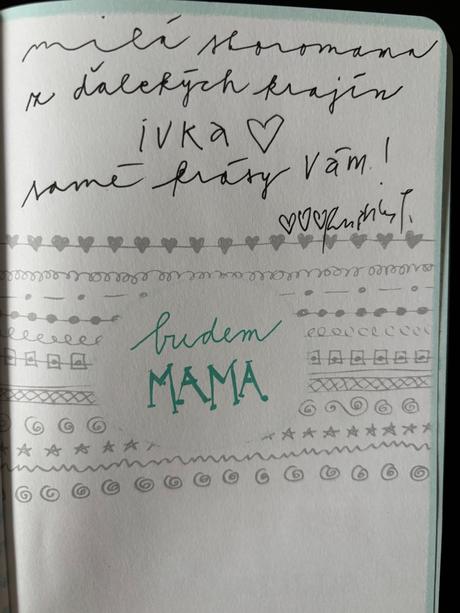 milá skoromama
z ďalekých krajín
IVKA ♡
samé krásy Vám!
♡♡♡
budem
MAMA